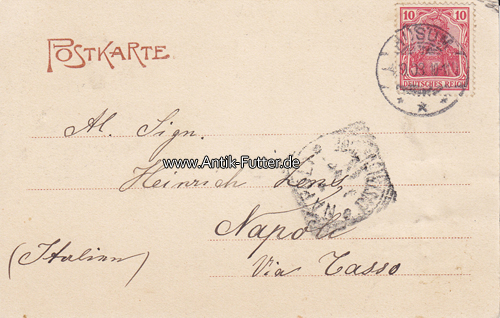 POSTKARTE
10 10
HUSUM
DEUTSCHES REICH
Al. Sign.
www.Antik-Futter.de
Heinrich Lenz
NAPOLI
Napoli
(Italien)
Via Tasso